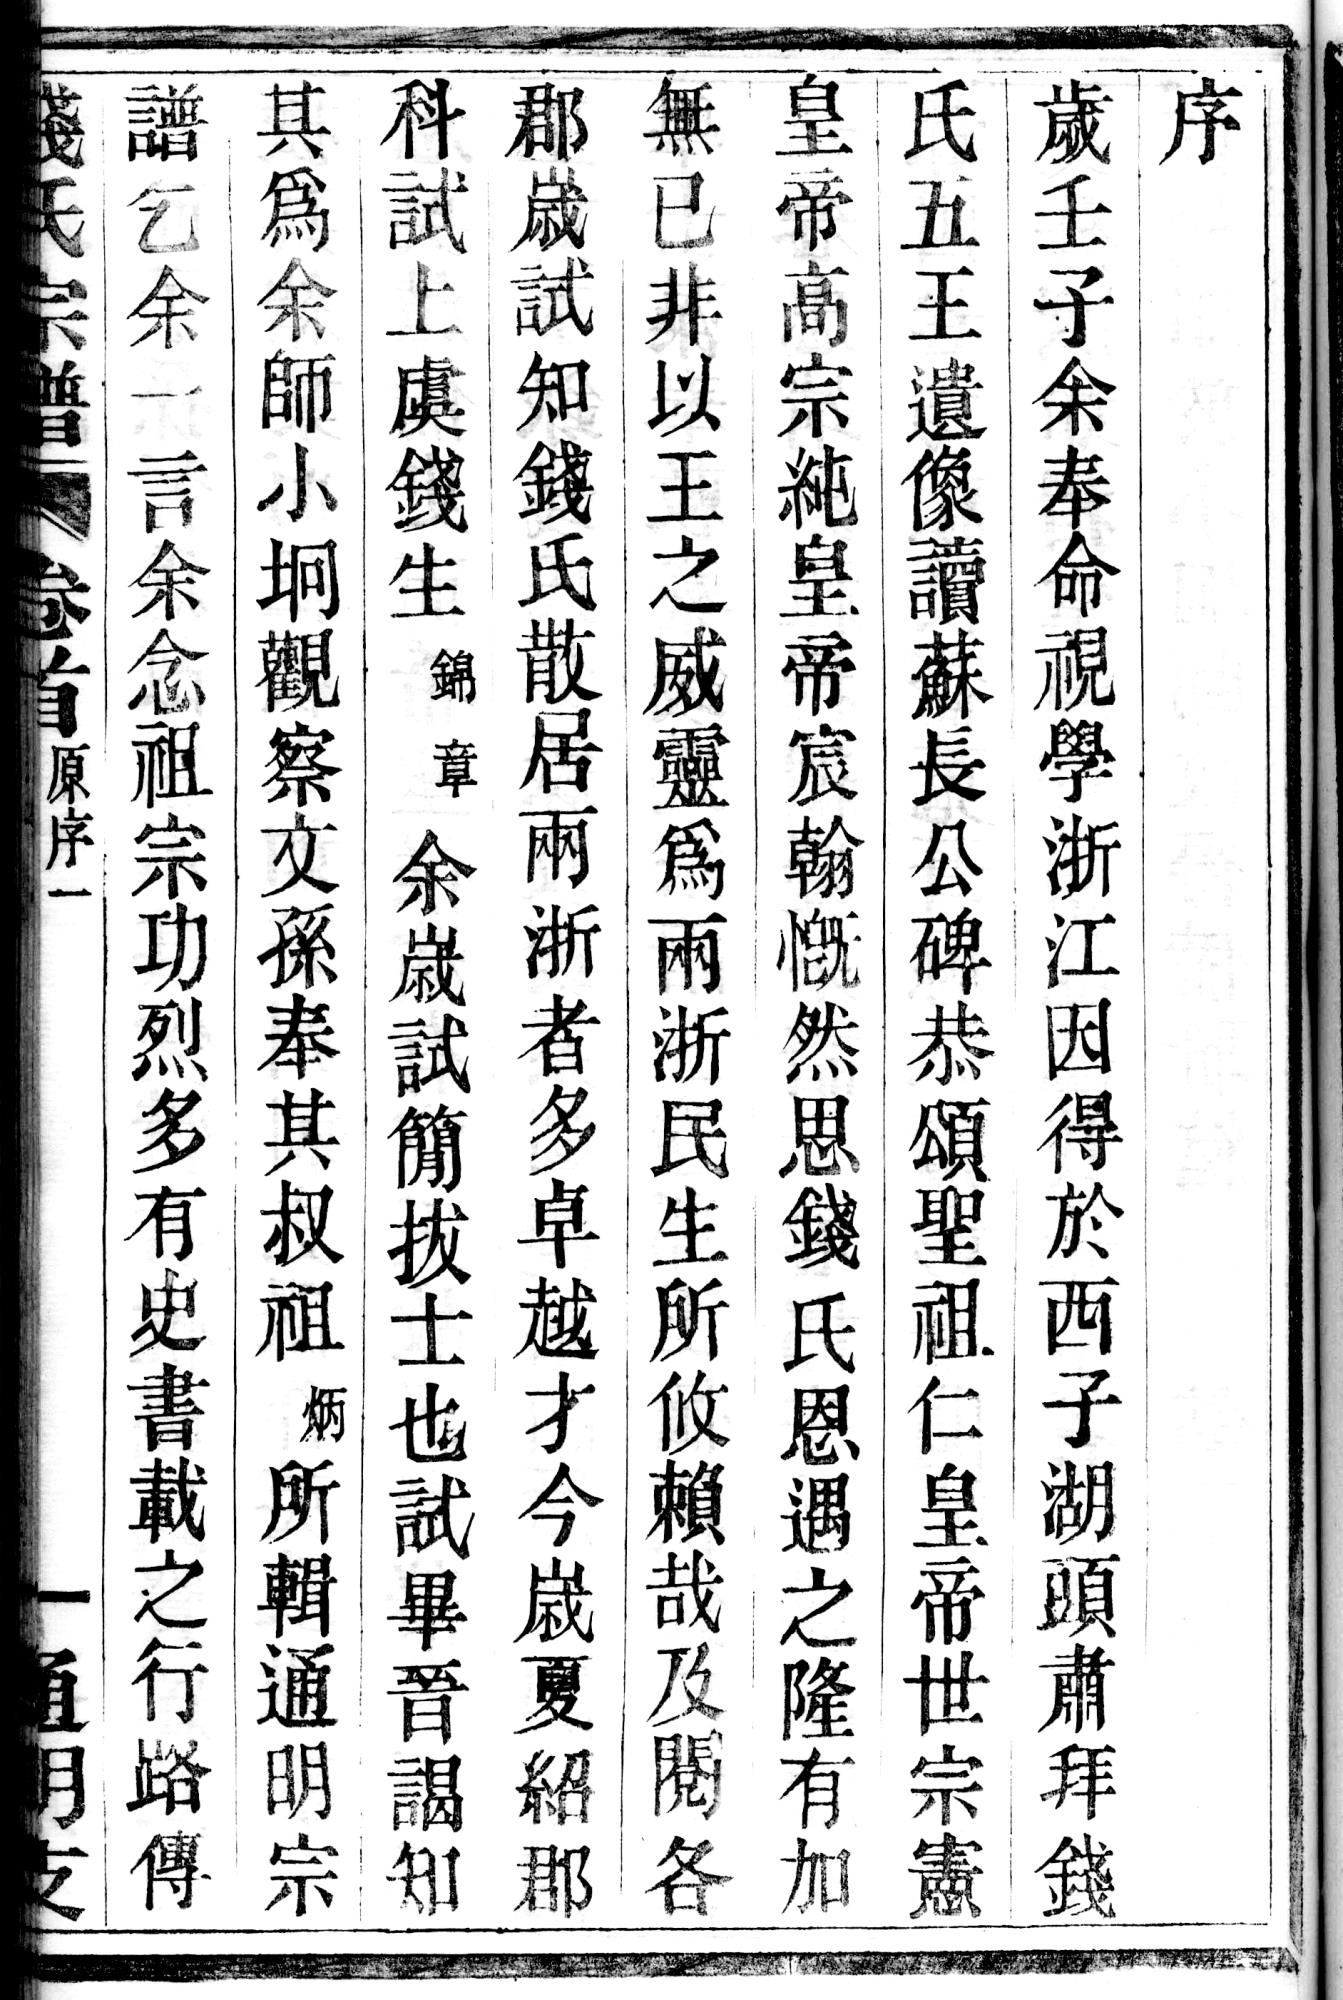 序
歲壬子余奉命視學浙江因得於西子湖頭肅拜錢
氏五王遺像讀蘇長公碑恭頌聖祖仁皇帝世宗憲
皇帝高宗純皇帝宸翰慨然思錢氏恩遇之隆有加
無已非以王之威靈爲兩浙民生所攸賴哉及閱各
郡歲試知錢氏散居兩浙者多卓越才今歲夏紹郡
科試上虞錢生錦章余歲試簡拔士也試畢晉謁知
其爲余師小坰觀察文孫奉其叔祖炳所輯通明宗
譜乞余一言余念祖宗功烈多有史書載之行路傳
錢氏宗譜 卷首 原序一 一 通明支